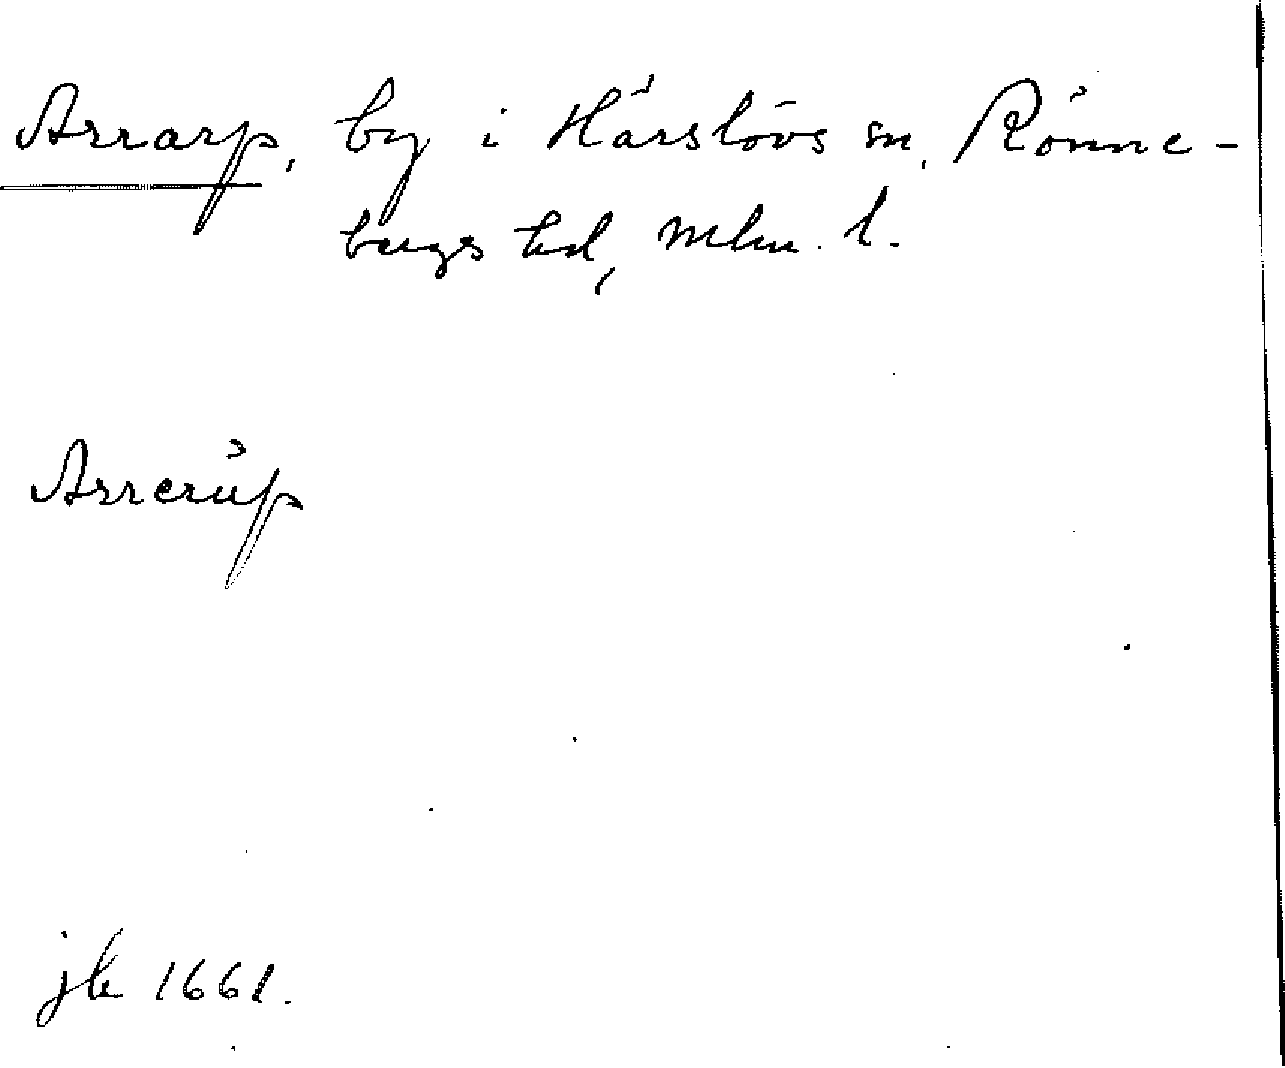 Arrarp, by i Härslövs sn, Rönne-
bergs hd, Mlm. l.
Arrerup
jb 1661.